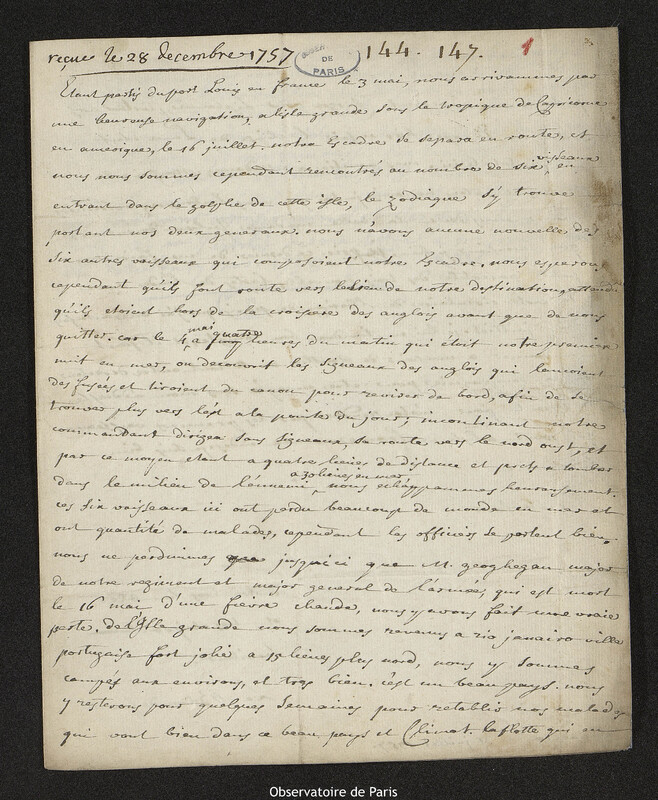 reçue le 28 decembre 1757
DE
PARIS
144. 147.
1
Etant partis du port Louis en france le 3 mai, nous arrivammes par
une heureuse navigation, a lisle grande sous le tropique de Capricorne
en amerique, le 16 juillet. notre Escadre se separa en route, et
nous nous sommes cependant rencontrés au nombre de six visseaux en
entrant dans le golphe de cette isle, le zodiaque s'y trouve
portant nos deux generaux. nous n'avons aucune nouvelle des
six autres vaisseaux qui composoient notre Escadre. nous esperons
cependant qu'ils font route vers le lieu de notre destination, attendu
qu'ils etoient hors de la croisiere des anglois avant que de nous
quitter. car le 4 mai a quatre heures du matin qui étoit notre premiere
nuit en mer, on decouvrit les signeaux des anglois qui lancoient
des fusées et tiroient du canon pour reviser de bord, afin de se
trouver plus vers l'est a la pointe du jour; incontinant notre
commandant dirigea sans signeaux, sa route vers le nord oust, et
par ce moyen etant a quatre lieues de distance et prets a tomber
dans le milieu de l'ennemi a 30 lieues en mer nous echappammes heureusement.
ces six vaisseaux ici ont perdu beaucoup de monde en mer et
ont quantité de malades, cependant les officiers se portent bien.
nous ne perdimmes jusqu'ici que M. geoghegan major
de notre regiment et major general de l'armée, qui est mort
le 16 mai d'une fievre chaude, nous y avons fait une vraie
perte. de l'Isle grande nous sommes revenus a rio janairo ville
portugaise fort jolie a 15 lieues plus nord, nous y sommes
campés aux environs, et tres bien. c'est un beau pays. nous
y resterons pour quelques semaines pour retablir nos malades
qui vont bien dans ce beau pays et Climat. la flotte qui en
Observatoire de Paris